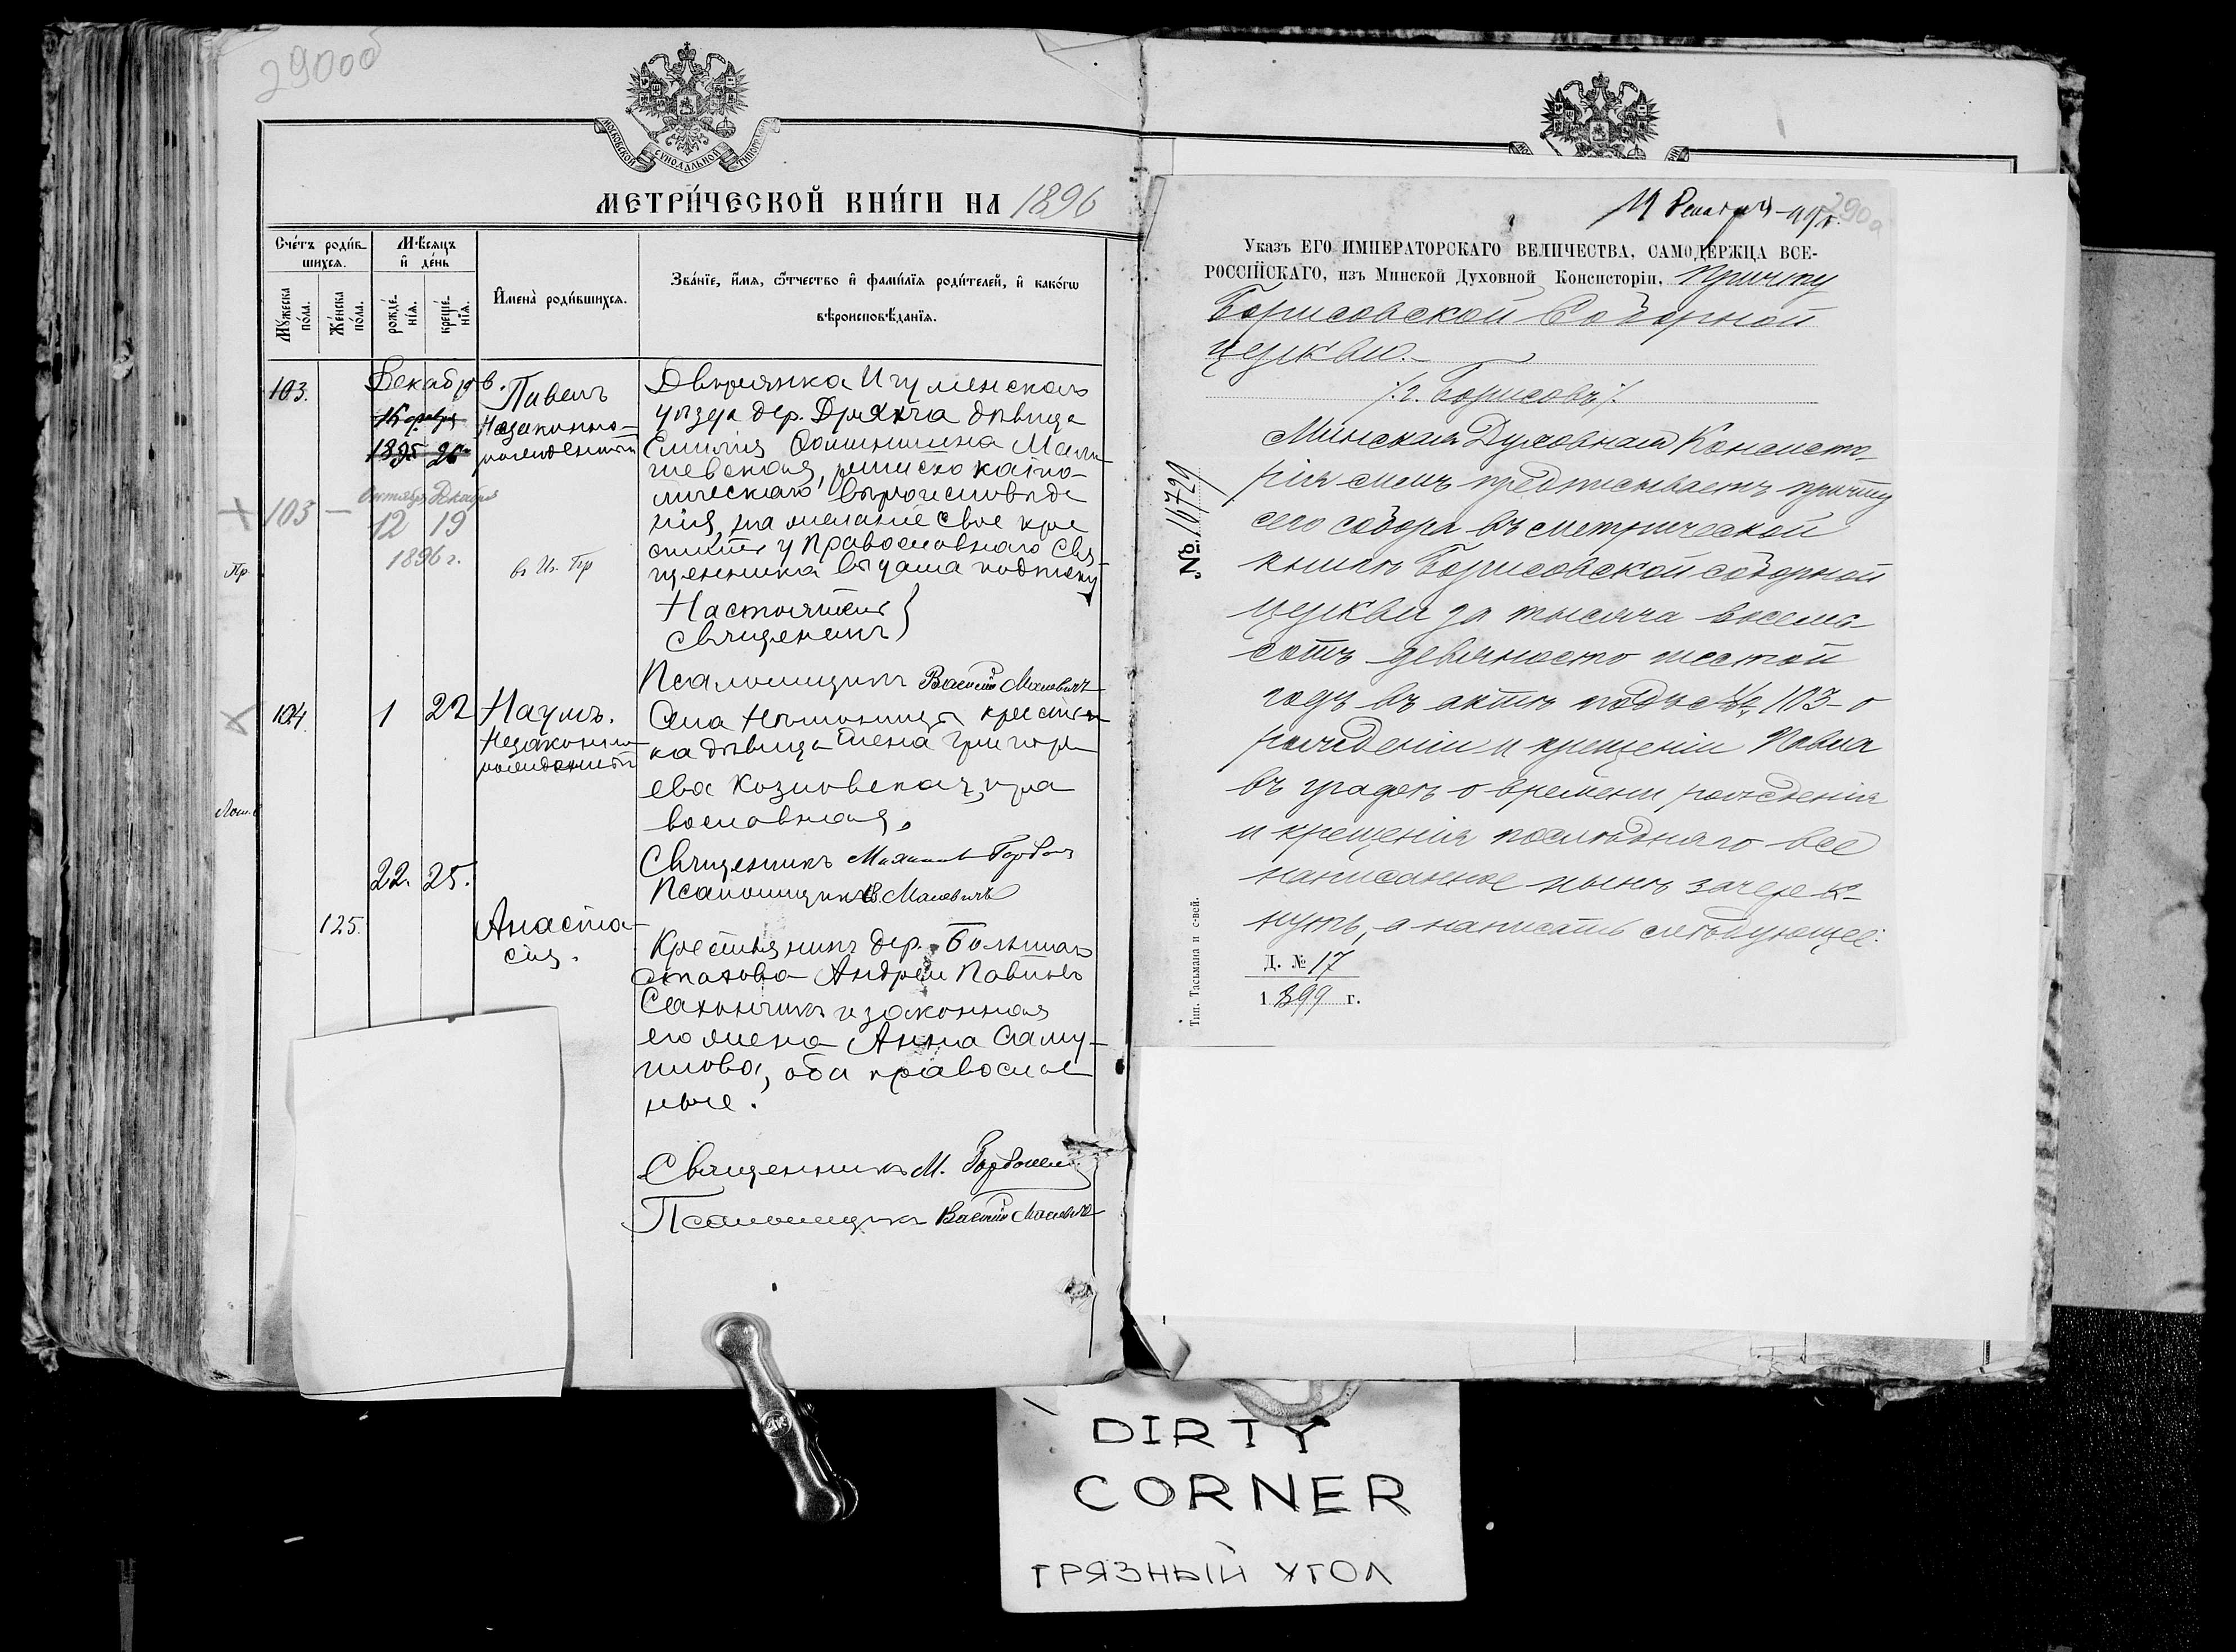 290об
МОСКОВСКОЙ СУНОДАЛЬНОЙ ТИПОГРАФІИ
МЕТРИ́ЧЕСКОЙ КНИ́ГИ НА 1896
Счётъ роди́в-
шихся.
Мѣсяцъ
и҆ де́нь
Мꙋ́жеска
по́ла.
Же́нска
по́ла.
рожде́-
нїѧ.
креще́-
нїѧ.
И҆мена̀ роди́вшихся.
Зва́нїе, и҆́мя, ѻ҆́тчество и҆ фами́лїя роди́телей, и҆ како́гѡ
вѣроисповѣ́данїя.
103.
Декабрь.
1895 20
Павелъ
Незаконно-
рожденный
Дворянка Игуменскаго
уѣзда дер. дѣвица
Емилія
шевская, римско като-
лическаго вѣроисповѣда
нія, на желаніе свое кре
стить у Православнаго Свя
щенника выдала подписку
Настоятель }
священникъ }
Псаломщикъ Василій Малевичъ
+ 103 —
Октября Декабря
12 19
1896 г.
Пр.
104.
1 22
Наумъ.
Незаконно
рожденный
Села крестьян
ка дѣвица Елена Григорь
ева Козловская, пра
вославная.
Священникъ Михаилъ
Псаломщикъ В. Малевичъ
125.
22. 25.
Анаста-
сія.
Крестьянинъ дер. Большаго
Стахова Андрей Павловъ
и законная
его жена Анна Саму-
илова, оба православ
ные.
Священникъ М.
Псаломщикъ Василій Малевичъ
290а
Указъ ЕГО ИМПЕРАТОРСКАГО ВЕЛИЧЕСТВА, САМОДЕРЖЦА ВСЕ-
РОССІЙСКАГО, изъ Минской Духовной Консисторіи, Причту
Борисовской Соборной
церкви.
/.г. Борисовъ/.
№ 16729
Минская Духовная Консисто-
рія симъ предписываетъ причту
сего собора въ метрической
книгѣ Борисовской соборной
церкви за тысяча восемь-
сотъ девяносто шестой
годъ въ актѣ подъ № 103 о
рожденіи и крещеніи Павла
въ графѣ о времени рожденія
и крещенія послѣдняго все
написанное нынѣ зачерк-
нуть, а написать слѣдующее:
Д. № 17
1899 г.
Тип. Тасьмана и с-вей.
DIRTY
CORNER
ГРЯЗНЫЙ УГОЛ